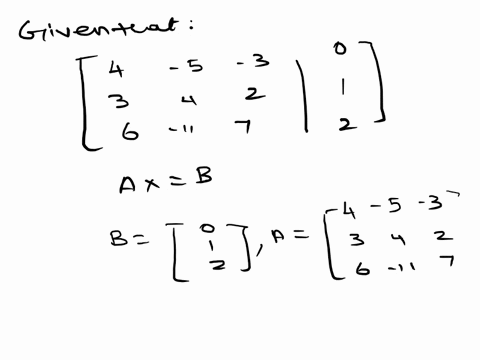 Given that:
4 -5 -3 | 0
3 4 2 | 1
6 -11 7 | 2
Ax = B
B = [0 1 2], A = [4 -5 -3
3 4 2
6 -11 7]